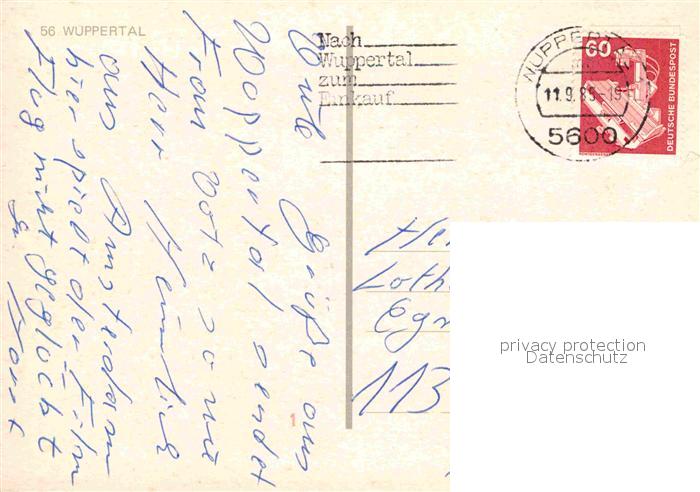 56 WUPPERTAL
Nach
Wuppertal
zum
Einkauf
WUPPERTAL
11.9.85-15
5600
60
DEUTSCHE BUNDESPOST
Gute Grüße aus
Wuppertal sendet
Frau Votz sowie
Herr
aus Amsterdam
hier spielt der Film
Flug nicht geglückt
1
He
Loth
Egr
113
privacy protection
Datenschutz